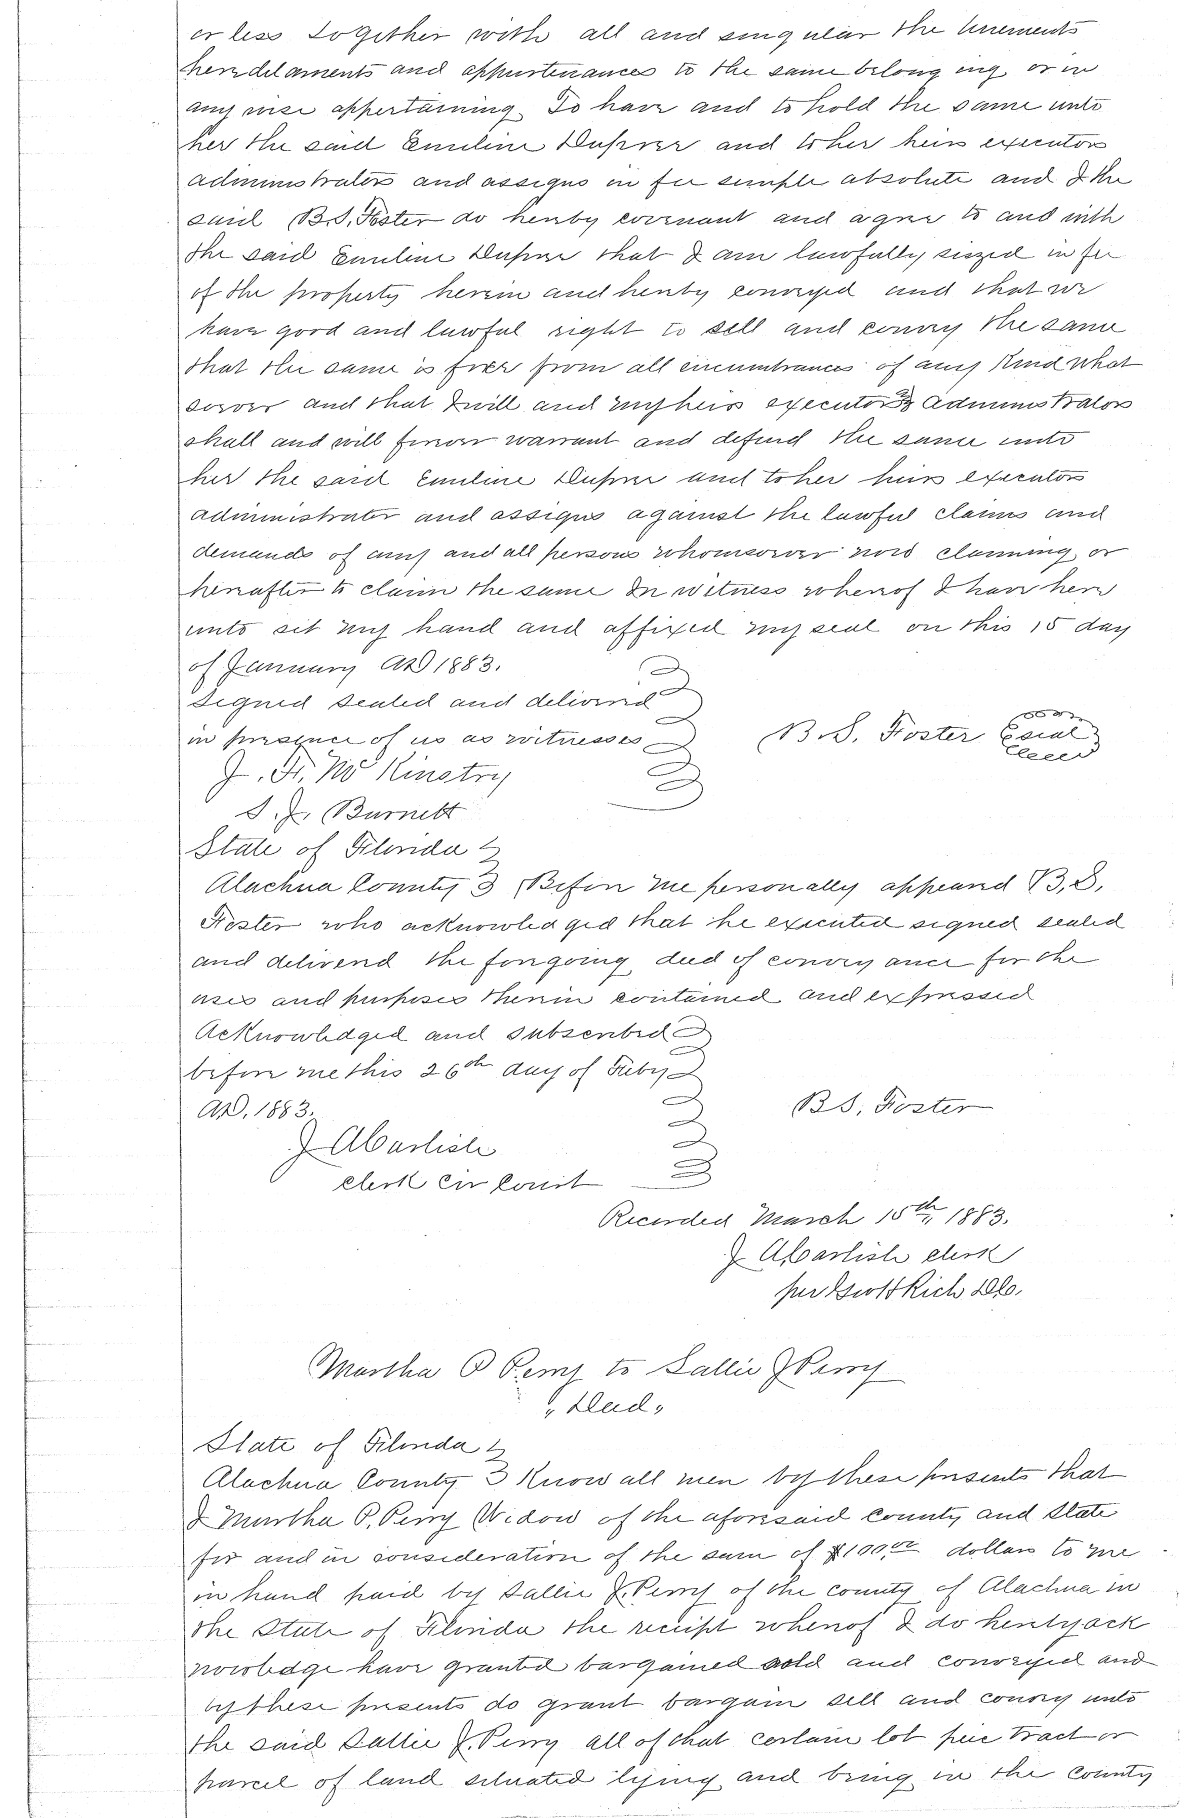 or less together with all and singular the tenements
heredelaments and appurtenances to the same belonging or in
any wise appertaining To have and to hold the same unto
her the said Emeline Dupree and to her heirs executors
administrators and assigns in fee simple absolute and I the
said B.S. Foster do hereby covenant and agree to and with
the said Emeline Dupree that I am lawfully siezed in fee
of the property herein and hereby conveyed and that we
have good and lawful right to sell and convey the same
that the same is free from all incumbrances of any kind what
soever and that I will and my heirs executors & administrators
shall and will forever warrant and defend the same unto
her the said Emeline Dupree and to her heirs executors
administrators and assigns against the lawful claims and
demands of any and all persons whomsoever now claiming or
hereafter to claim the same In witness whereof I have here
unto set my hand and affixed my seal on this 15 day
of January AD 1883.
Signed sealed and delivered
in presence of us as witnesses
B.S. Foster seal
J. F. McKinstry
S. J. Burnett
State of Florida
Alachua County } Before me personally appeared B.S.
Foster who acknowledged that he executed signed sealed
and delivered the foregoing deed of conveyance for the
uses and purposes therein contained and expressed
Acknowledged and subscribed
before me this 26th day of Feby
AD. 1883.
B S. Foster
J A Carlisle
clerk cir court
Recorded March 15th, 1883.
J A Carlisle clerk
per Rich D.C.
Martha P Perry to Sallie J Perry
"Deed"
State of Florida
Alachua County } Know all men by these presents that
I Martha P. Perry Widow of the aforesaid county and State
for and in consideration of the sum of $100.00 dollars to me
in hand paid by Sallie J. Perry of the county of Alachua in
the State of Florida the receipt whereof I do hereby ack
nowledge have granted bargained sold and conveyed and
by these presents do grant bargain sell and convey unto
the said Sallie J. Perry all of that certain lot piece tract or
parcel of land situated lying and being in the county